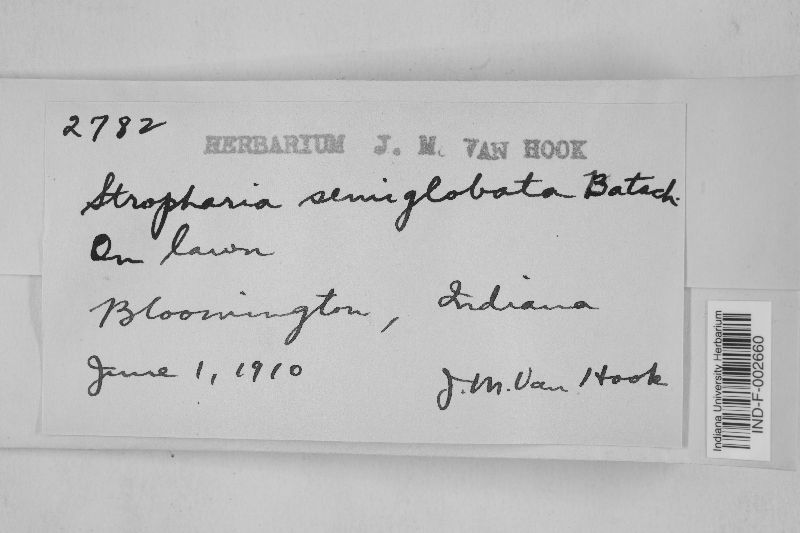 2782
HERBARIUM J. M. VAN HOOK
Stropharia semiglobata Batsch.
On lawn
Bloomington, Indiana
June 1, 1910
J. M. Van Hook
Indiana University Herbarium
IND-F-002660